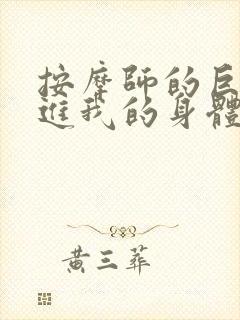 按摩師的巨
進我的身體
黃三葬